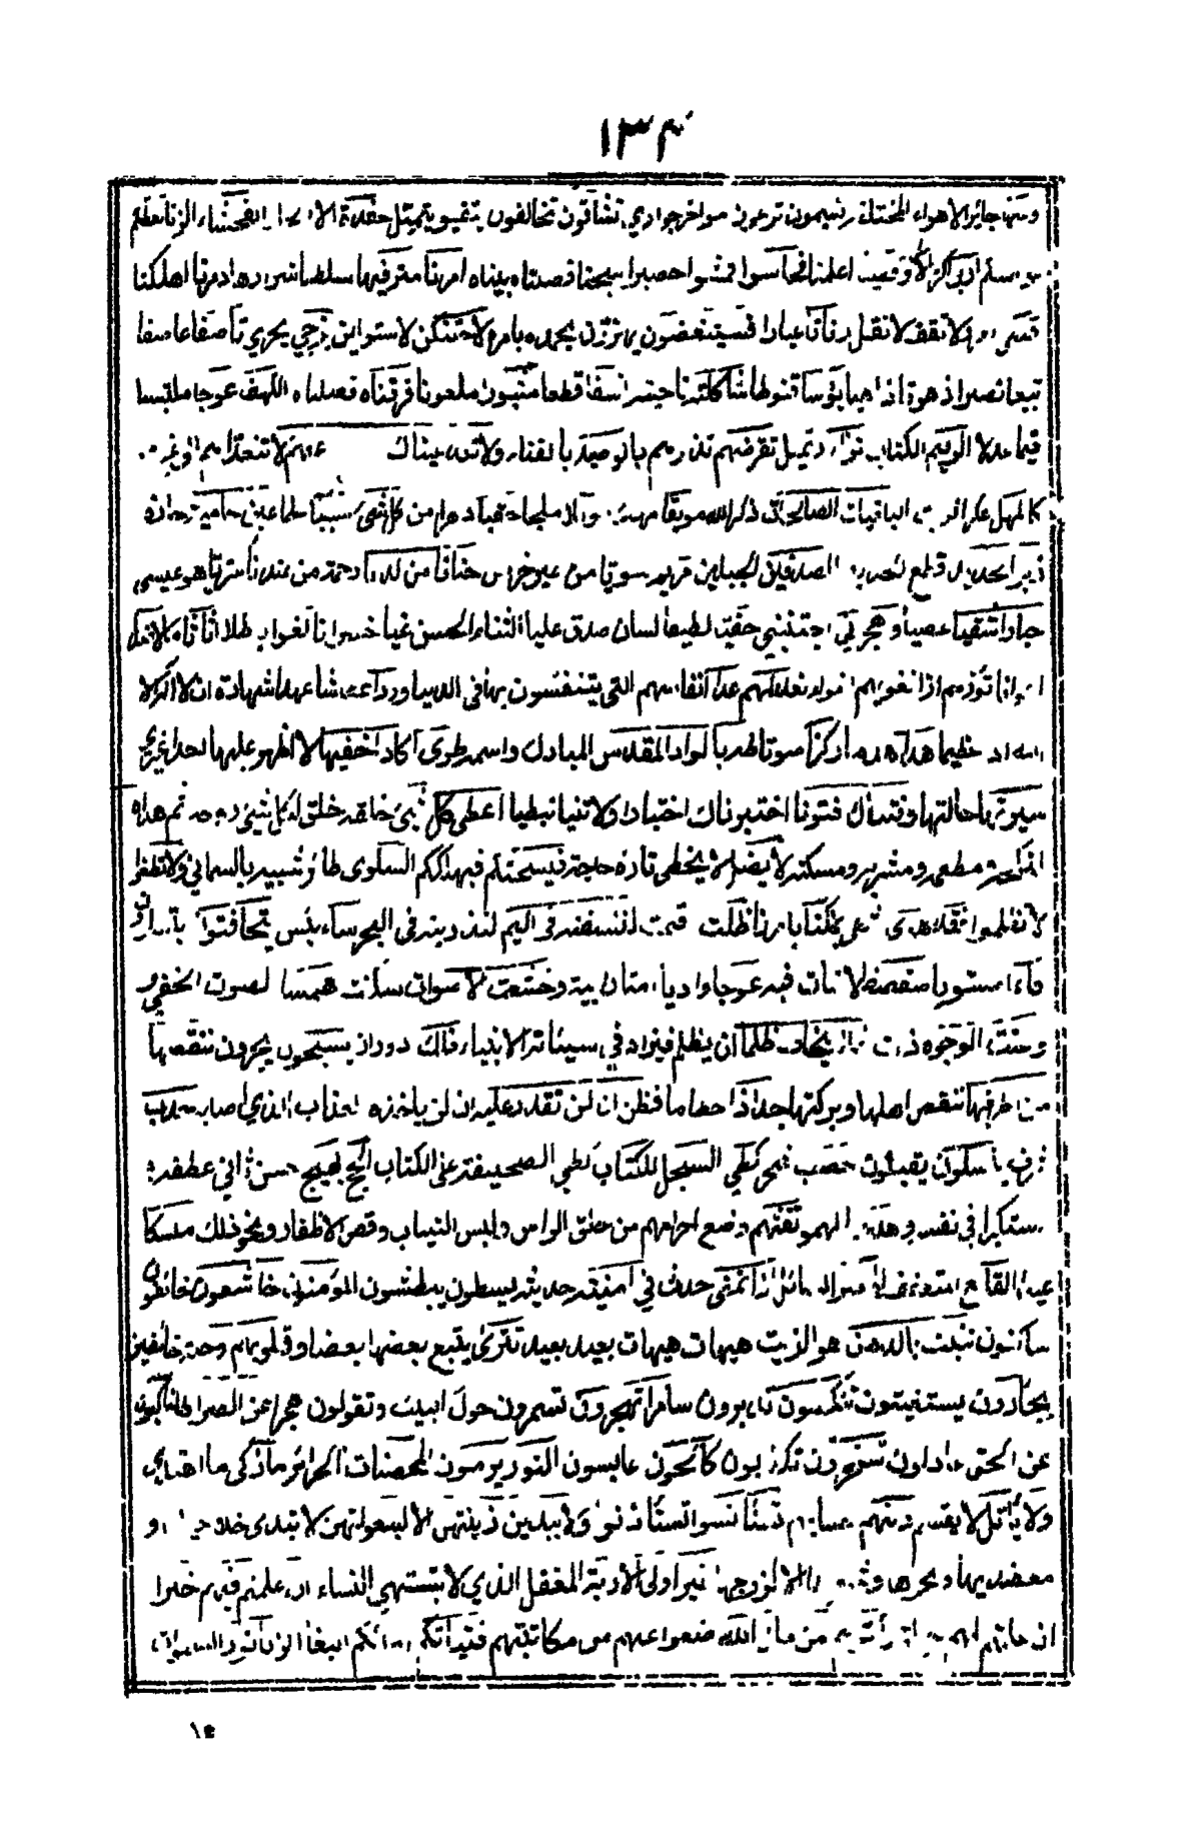 ١٣٤
ومنها جائر الاهواء المختلفة تسيمون ترعون مواخر جواري تشاقون تخالفون يتفيؤ يتميل حفدة الفحشاء الزنا يعظكم
وقضينا اعلمنا فجاسوا فمشوا حصيرا سجنا فصلناه بيناه امرنا مترفيها سلطنا شرارها دمرنا اهلكنا
ولا تقف لا تقل رفاتا غبارا فسينغضون يهزون بحمده بامره لاحتنكن لاستولين يزجي يجري قاصفا عاصفا
تبيعا نصيرا زهوقا ذاهبا يؤسا قنوطا شاكلته ناحيته كسفا قطعا مثبورا ملعونا فرقناه فصلناه الكهف عوجا ملتبسا
قيما عدلا الرقيم الكتاب تزاور تميل تقرضهم تذرهم بالوصيد بالفناء ولا تعد عيناك عنهم لا تتعداهم الى غيرهم
كالمهل عكر الزيت الباقيات الصالحات ذكر الله موبقا مهلكا موئلا ملجأ حقبا دهرا من كل شيء سببا علما عين حامية حارة
زبر الحديد قطع الحديد الصدفين الجبلين سويا من غير خرس حنانا من لدنا رحمة من عندنا سريا هو عيسى
جبارا شقيا عصيا واهجرني اجتنبني حفيا لطيفا لسان صدق عليا الثناء الحسن غيا خسرانا لغوا باطلا اثاثا مالا
تؤزهم ازا تغويهم اغواء نعد لهم عدا انفاسهم التي يتنفسون بها في الدنيا وردا عطاشا عهدا شهادة ان لا اله الا
الله ادا عظيما هدا هدما ركزا صوتا طه بالواد المقدس المبارك واسمه طوى اكاد اخفيها لا اظهر عليها احدا غيري
سيرتها حالتها وفتناك فتونا اختبرناك اختبارا ولا تنيا تبطئا اعطى كل شيء خلقه خلق لكل شيء زوجه ثم هداه
لمنكحه ومطعمه ومشربه ومسكنه لا يضل لا يخطئ تارة حاجة فيسحتكم فيهلككم السلوى طائر شبيه بالسماني ولا تطغوا
لا تظلموا فقد هوى شقي بملكنا بامرنا ظلت اقمت لننسفنه في اليم نسفا لنذرينه في البحر ساء بئس يتخافتون يتسارون
قاعا مستويا صفصفا لا نبات فيه عوجا واديا امتا رابية وخشعت الاصوات سكنت همسا الصوت الخفي
وعنت الوجوه ذلت فلا يخاف ظلما ان يظلم فيزاد في سيئاته الانبياء فلك دوران يسبحون يجرون ننقصها
من اطرافها ننقص اهلها وبركتها جذاذا حطاما فظن ان لن نقدر عليه ان لن ياخذه العذاب الذي اصابه حدب
شرف ينسلون يقبلون حصب شجر كطي السجل للكتاب كطي الصحيفة على الكتاب الحج بهيج حسن ثاني عطفه
مستكبرا في نفسه وهدوا الهموا تفثهم وضع احرامهم من حلق الراس ولبس الثياب وقص الاظفار ونحو ذلك منسكا
عيدا القانع المتعفف المعتر السائل اذا تمنى حدث في امنيته حديثه يسطون يبطشون المؤمنون خاشعون خائفون
ساكنون تنبت بالدهن هو الزيت هيهات هيهات بعيد بعيد تترى يتبع بعضها بعضا وقلوبهم وجلة خائفين
يجأرون يستغيثون تنكصون تدبرون سامرا تهجرون تسمرون حول البيت وتقولون هجرا عن الصراط لناكبون
عن الحق عادلون تسحرون تكذبون كالحون عابسون النور يرمون المحصنات الحرائر ما زكى ما اهتدى
ولا ياتل لا يقسم دينهم حسابهم تستانسوا تستاذنوا ولا يبدين زينتهن الا لبعولتهن لا تبدي خلاخيلها و
معضديها ونحرها وشعرها الا لزوجها غير اولي الاربة المغفل الذي لا يشتهي النساء ان علمتم فيهم خيرا
ان علمتم لهم حيلة وآتوهم من مال الله ضعوا عنهم من مكاتبتهم فتياتكم امائكم البغاء الزنا نور السموات
١٤